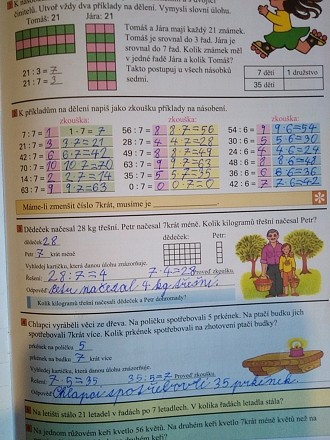 činitelů. Utvoř vždy dva příklady na dělení. Vymysli slovní úlohu.
Tomáš: 21 Jára: 21
Tomáš a Jára mají každý 21 známek.
Tomáš je srovnal do 3 řad. Jára je
srovnal do 7 řad. Kolik známek měl
v jedné řadě Jára a kolik Tomáš?
Takto postupuj u všech násobků
sedmi.
21 : 3 = 7
21 : 7 = 3
7 dětí 1 družstvo
35 dětí
K příkladům na dělení napiš jako zkoušku příklady na násobení.
zkouška: zkouška: zkouška:
7 : 7 = 1 1·7=7 56 : 7 = 8 8·7=56 54 : 6 = 9 9·6=54
21 : 7 = 3 3·7=21 28 : 7 = 4 4·7=28 30 : 6 = 5 5·6=30
42 : 7 = 6 6·7=42 49 : 7 = 7 7·7=49 24 : 6 = 4 4·6=24
70 : 7 = 10 10·7=70 63 : 7 = 9 9·7=63 48 : 6 = 8 8·6=48
14 : 7 = 2 2·7=14 35 : 7 = 5 5·7=35 36 : 6 = 6 6·6=36
63 : 7 = 9 9·7=63 0 : 7 = 0 0·7=0 42 : 6 = 7 7·6=42
Máme-li zmenšit číslo 7krát, musíme je
Dědeček načesal 28 kg třešní. Petr načesal 7krát méně. Kolik kilogramů třešní načesal Petr?
dědeček 28 dědeček: Petr:
Petr 7 krát méně
Vyhledej kartičku, která danou úlohu znázorňuje.
Řešení 28:7=4 7·4=28 Proveď zkoušku.
Odpověď načesal 4 kg třešní.
Kolik kilogramů třešní načesali dědeček a Petr dohromady?
Chlapci vyráběli věci ze dřeva. Na poličku spotřebovali 5 prkének. Na ptačí budku jich
spotřebovali 7krát více. Kolik prkének spotřebovali na zhotovení ptačí budky?
prkének na poličku 5
prkének na budku 7 krát více
Vyhledej kartičku, která danou úlohu znázorňuje.
Řešení 7·5=35 35:5=7 Proveď zkoušku.
Chlapci spotřebovali 35 prkének.
Na letišti stálo 21 letadel v řadách po 7 letadlech. V kolika řadách letadla stála?
Na jednom růžovém keři kvetlo 56 květů. Na druhém keři kvetlo 7krát méně květů než na